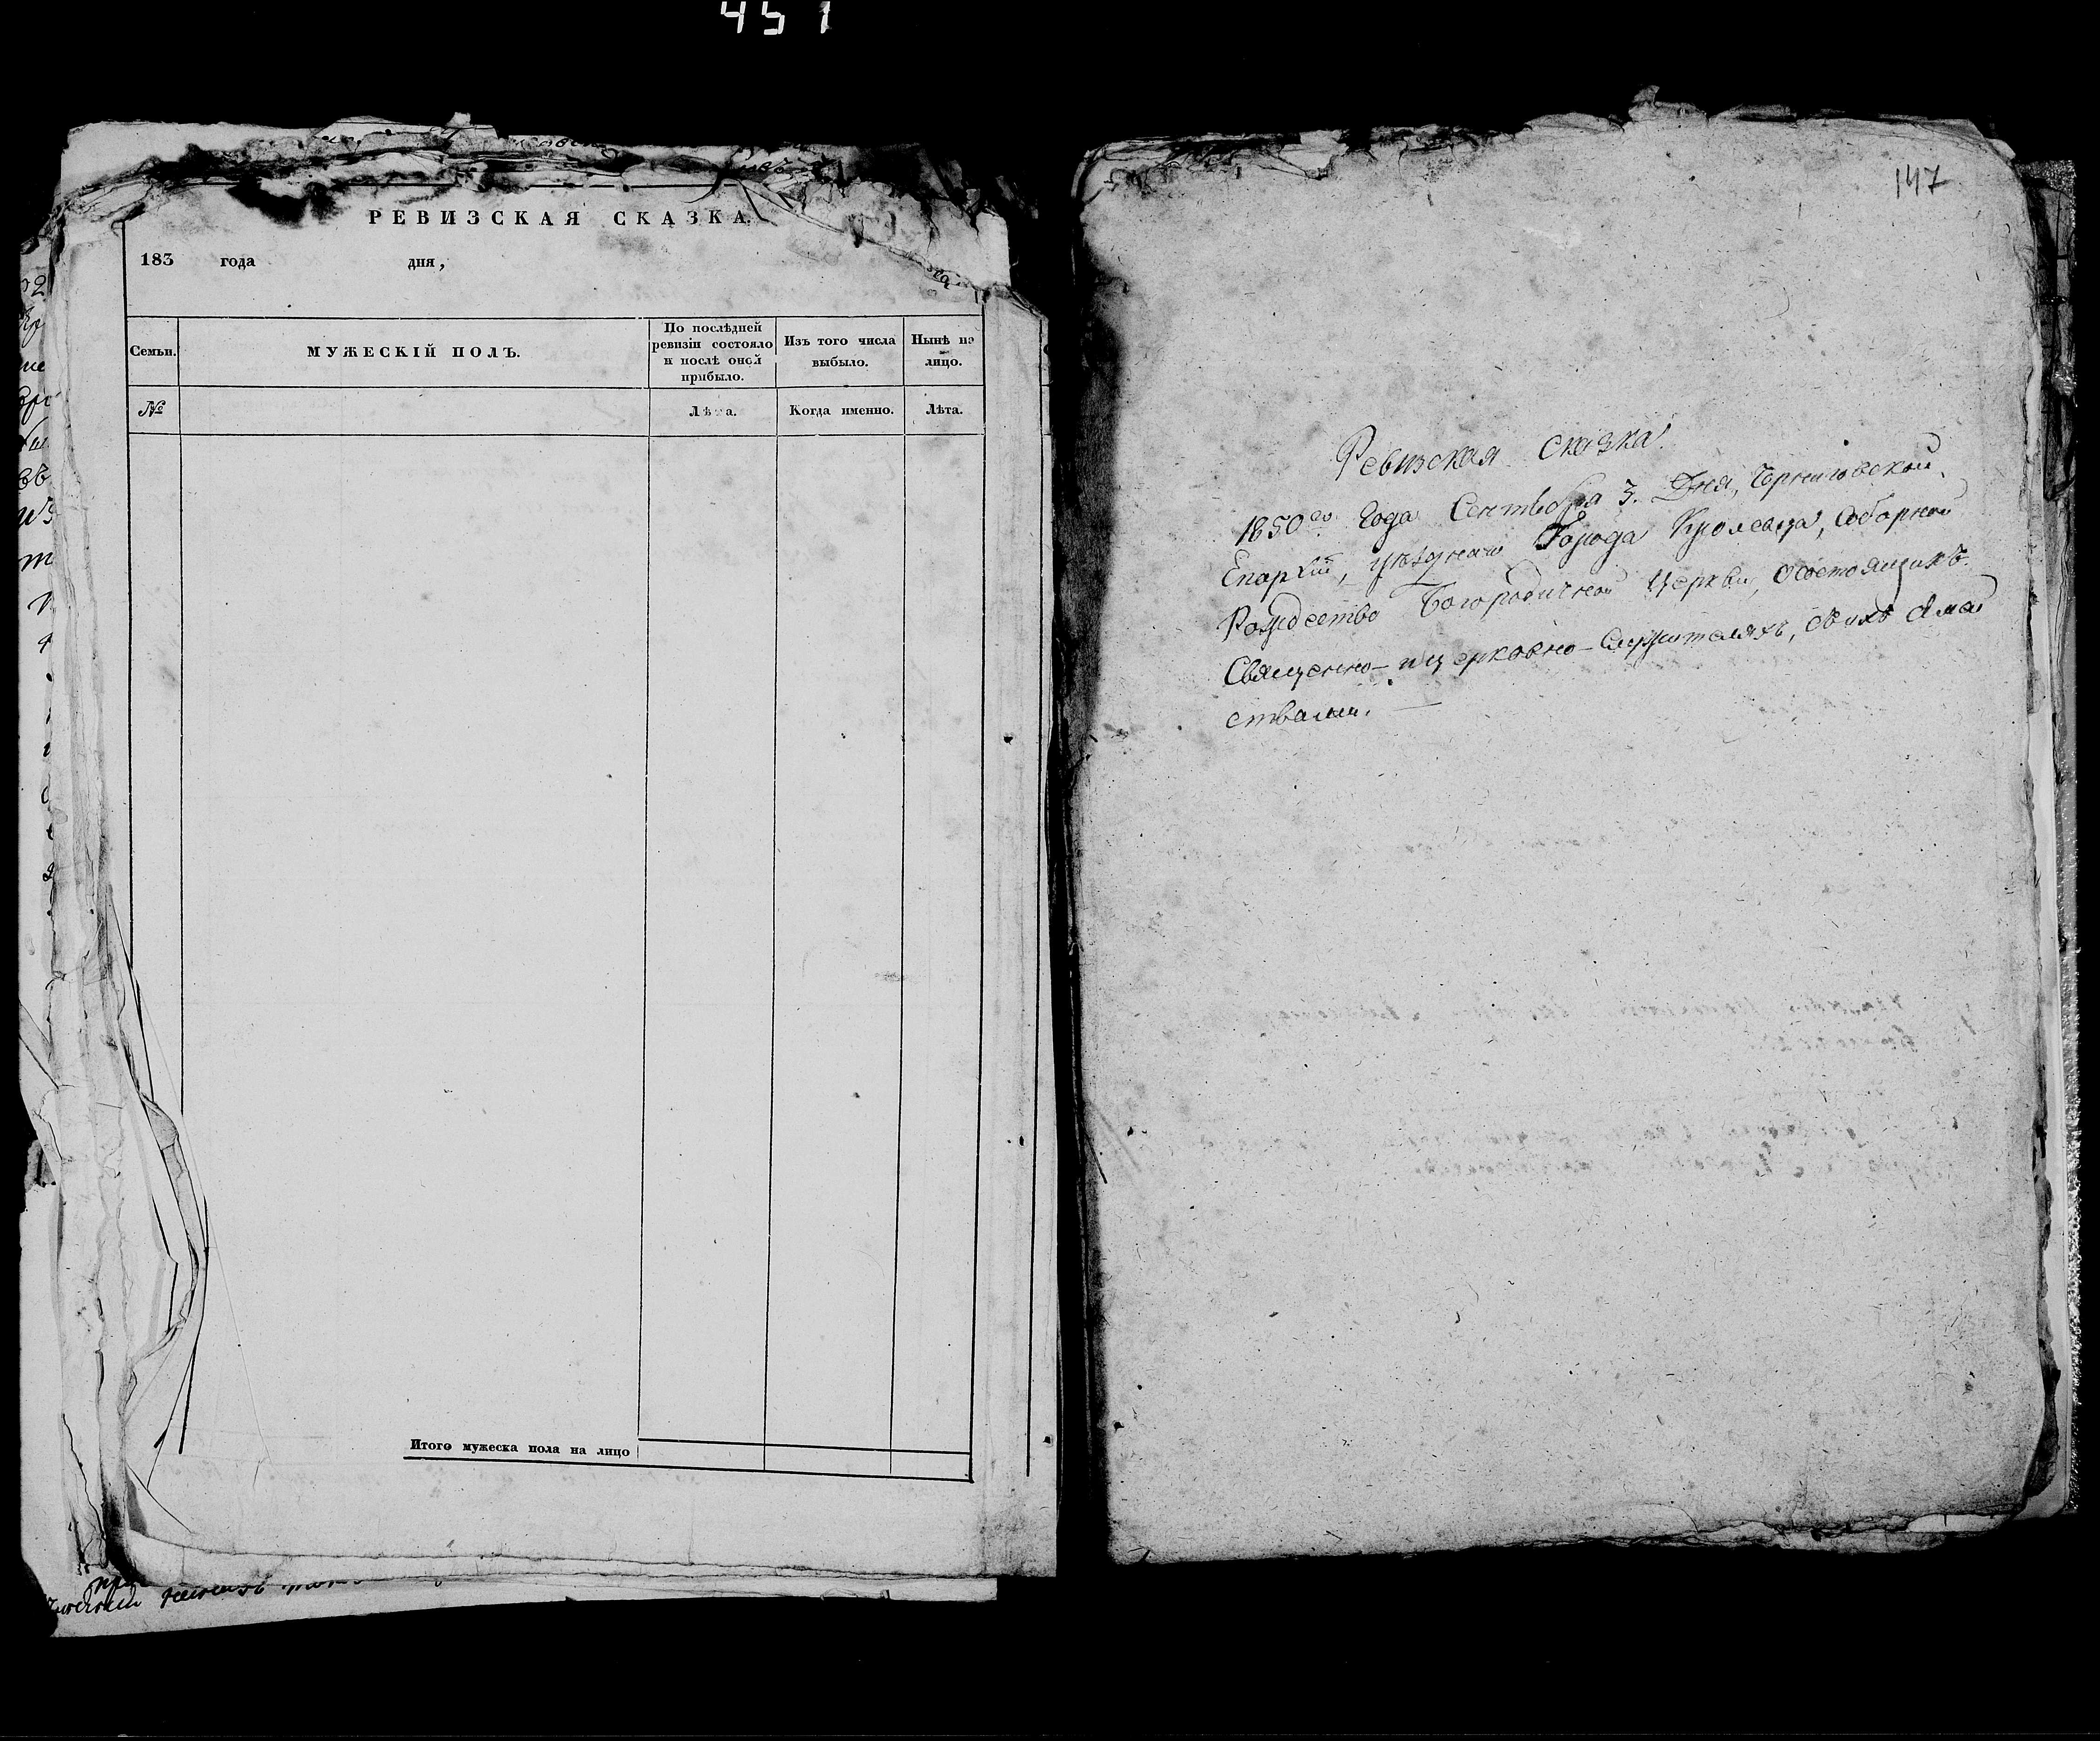 451
РЕВИЗСКАЯ СКАЗКА.
183 года дня,
Семьи.
МУЖЕСКІЙ ПОЛЪ.
По послѣдней
ревизіи состояло
и послѣ оной
прибыло.
Изъ того числа
выбыло.
Нынѣ на
лицо.
№
Лѣта.
Когда именно.
Лѣта.
Итого мужеска пола на лицо
147
Ревизская сказка
1850го Года Сентября 3. Дня, Черниговской
Епархіи, уѣзднаго Города Кролевца, Соборной
Рождество Богородичной Церкви, о состоящихъ
Священно- и церковно-Служителяхъ, съ ихъ Имей
ствами.